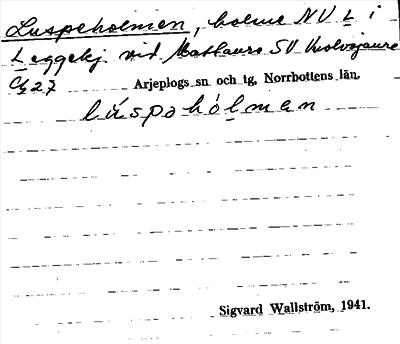 Luspeholmen, holme NV L i
Leggekj. vid Mattaure SV
Cg 27 Arjeplogs sn och tg, Norrbottens län.
lúspahólman
Sigvard Wallström, 1941.